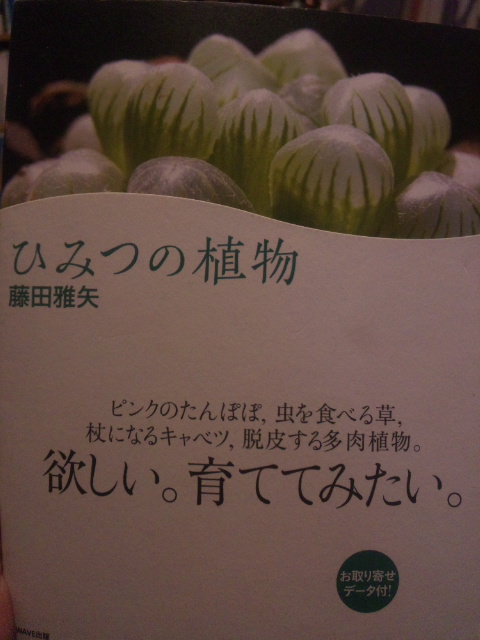 ひみつの植物
藤田雅矢
ピンクのたんぽぽ, 虫を食べる草,
杖になるキャベツ, 脱皮する多肉植物。
欲しい。育ててみたい。
お取り寄せ
データ付!
WAVE出版